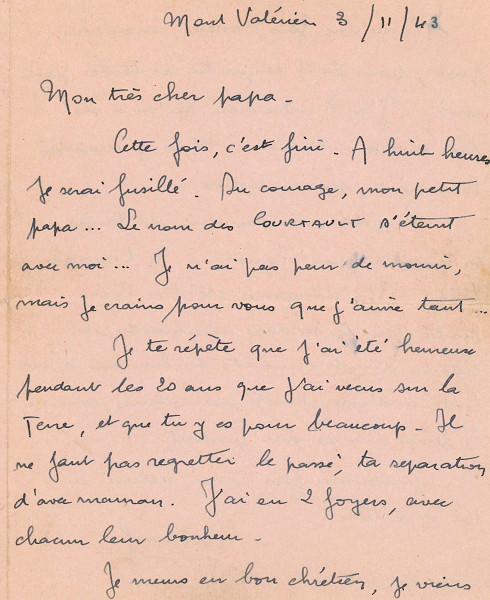 Mont Valérien 3/11/43
Mon très cher papa -
Cette fois, c'est fini - A huit heures
Je serai fusillé. Du courage, mon petit
papa... Le nom des COURTAULT s'éteint
avec moi... Je n'ai pas peur de mourir,
mais Je crains pour vous que J'aime tant...
Je te répète que J'ai été heureux
pendant les 20 ans que J'ai vecus sur la
Terre, et que tu y es pour beaucoup - Il
ne faut pas regretter le passé, ta separation
d'avec maman. J'ai eu 2 foyers, avec
chacun leur bonheur -
Je meurs en bon chrétien, je viens